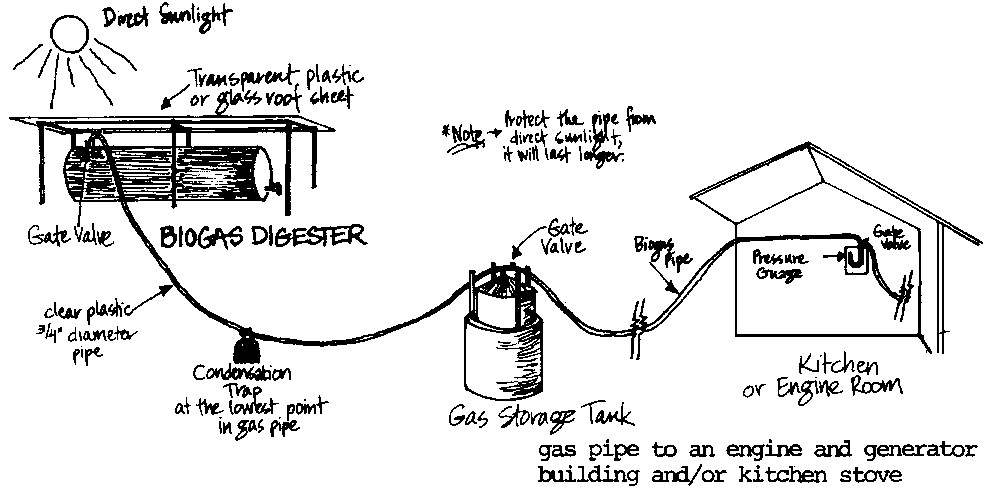 Direct Sunlight
Transparent plastic
or glass roof sheet
*Note → Protect the pipe from
direct sunlight,
it will last longer.
Gate Valve
BIOGAS DIGESTER
Gate
Valve
Biogas
Pipe
Gate
Valve
Pressure
Guage
clear plastic
3/4" diameter
pipe
Condensation
Trap
at the lowest point
in gas pipe
Gas Storage Tank
Kitchen
or Engine Room
gas pipe to an engine and generator
building and/or kitchen stove